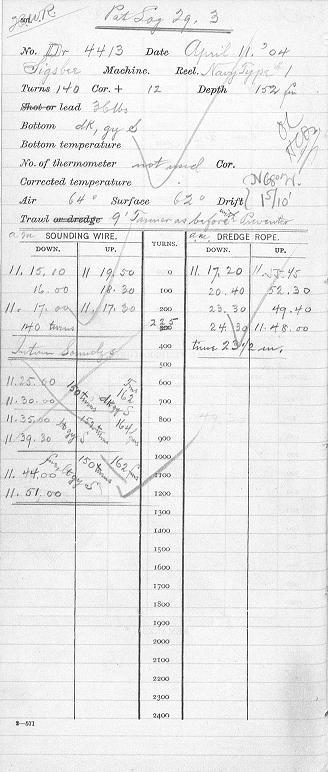 Pat Log 29. 3
No. Dr 4413 Date April 11. '04
Sigsbee Machine. Reel. Navy Type # 1
Turns 140 Cor. + 12 Depth 152 fm
Shot or lead 36 lbs
Bottom dk, gy S
Bottom temperature
No. of thermometer not used Cor.
Corrected temperature N 68° W.
Air 64° Surface 62° Drift 1 5/10'
Trawl or dredge 9' Tanner as before with Preventer
a m SOUNDING WIRE. TURNS. a.m. DREDGE ROPE.
DOWN. UP. DOWN. UP.
11. 15. 10 11 19. 50 0 11. 17. 20 55. 45
16. 00 18. 30 100 20. 40 52. 30
11. 17. 00 11. 17. 30 200 23. 30 49. 40
140 turns 225 300 24. 30 11. 48. 00
400 time 23 1/2 m.
500
11. 25. 00 600
11. 30. 00 150 turns dk gy S 162 700
11. 35. 00 152 turns 164 fms 800
11. 39. 30 lt gy S 900
150 turns 162 fms 1000
11. 44. 00 1100
11. 51. 00 1200
1300
1400
1500
1600
1700
1800
1900
2000
2100
2200
2300
2400
2—571